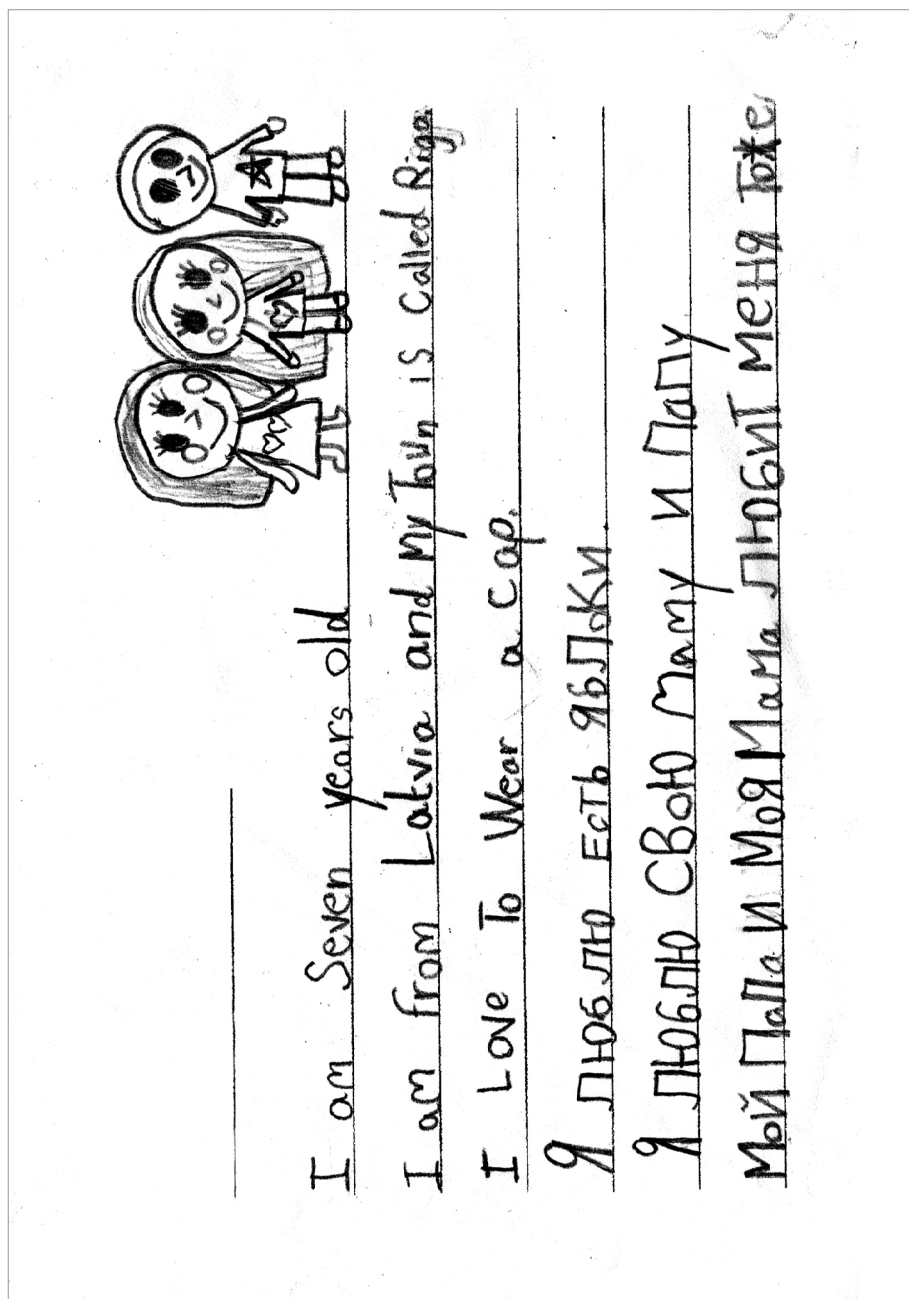 I am Seven years old
I am from Latvia and my Town is called Riga
I Love To Wear a cap.
Я люблю Есть яблоки
Я люблю Свою маму и Папу
Мой Папа и Моя Мама любит меня Тоже